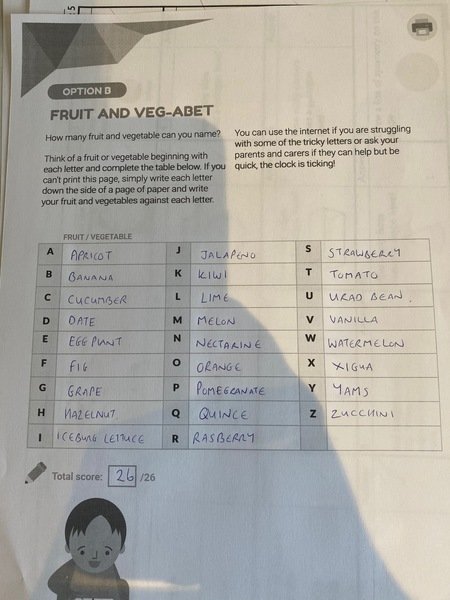 OPTION B
FRUIT AND VEG-ABET
How many fruit and vegetable can you name?
Think of a fruit or vegetable beginning with
each letter and complete the table below. If you
can't print this page, simply write each letter
down the side of a page of paper and write
your fruit and vegetables against each letter.
You can use the internet if you are struggling
with some of the tricky letters or ask your
parents and carers if they can help but be
quick, the clock is ticking!
FRUIT / VEGETABLE
A APRICOT J JALAPENO S STRAWBERRY
B BANANA K KIWI T TOMATO
C CUCUMBER L LIME U URAD BEAN.
D DATE M MELON V VANILLA
E EGGPLANT N NECTARINE W WATERMELON
F FIG O ORANGE X XIGUA
G GRAPE P POMEGRANATE Y YAMS
H HAZELNUT Q QUINCE Z ZUCCHINI
I ICEBURG LETTUCE R RASBERRY
Total score: 26 /26